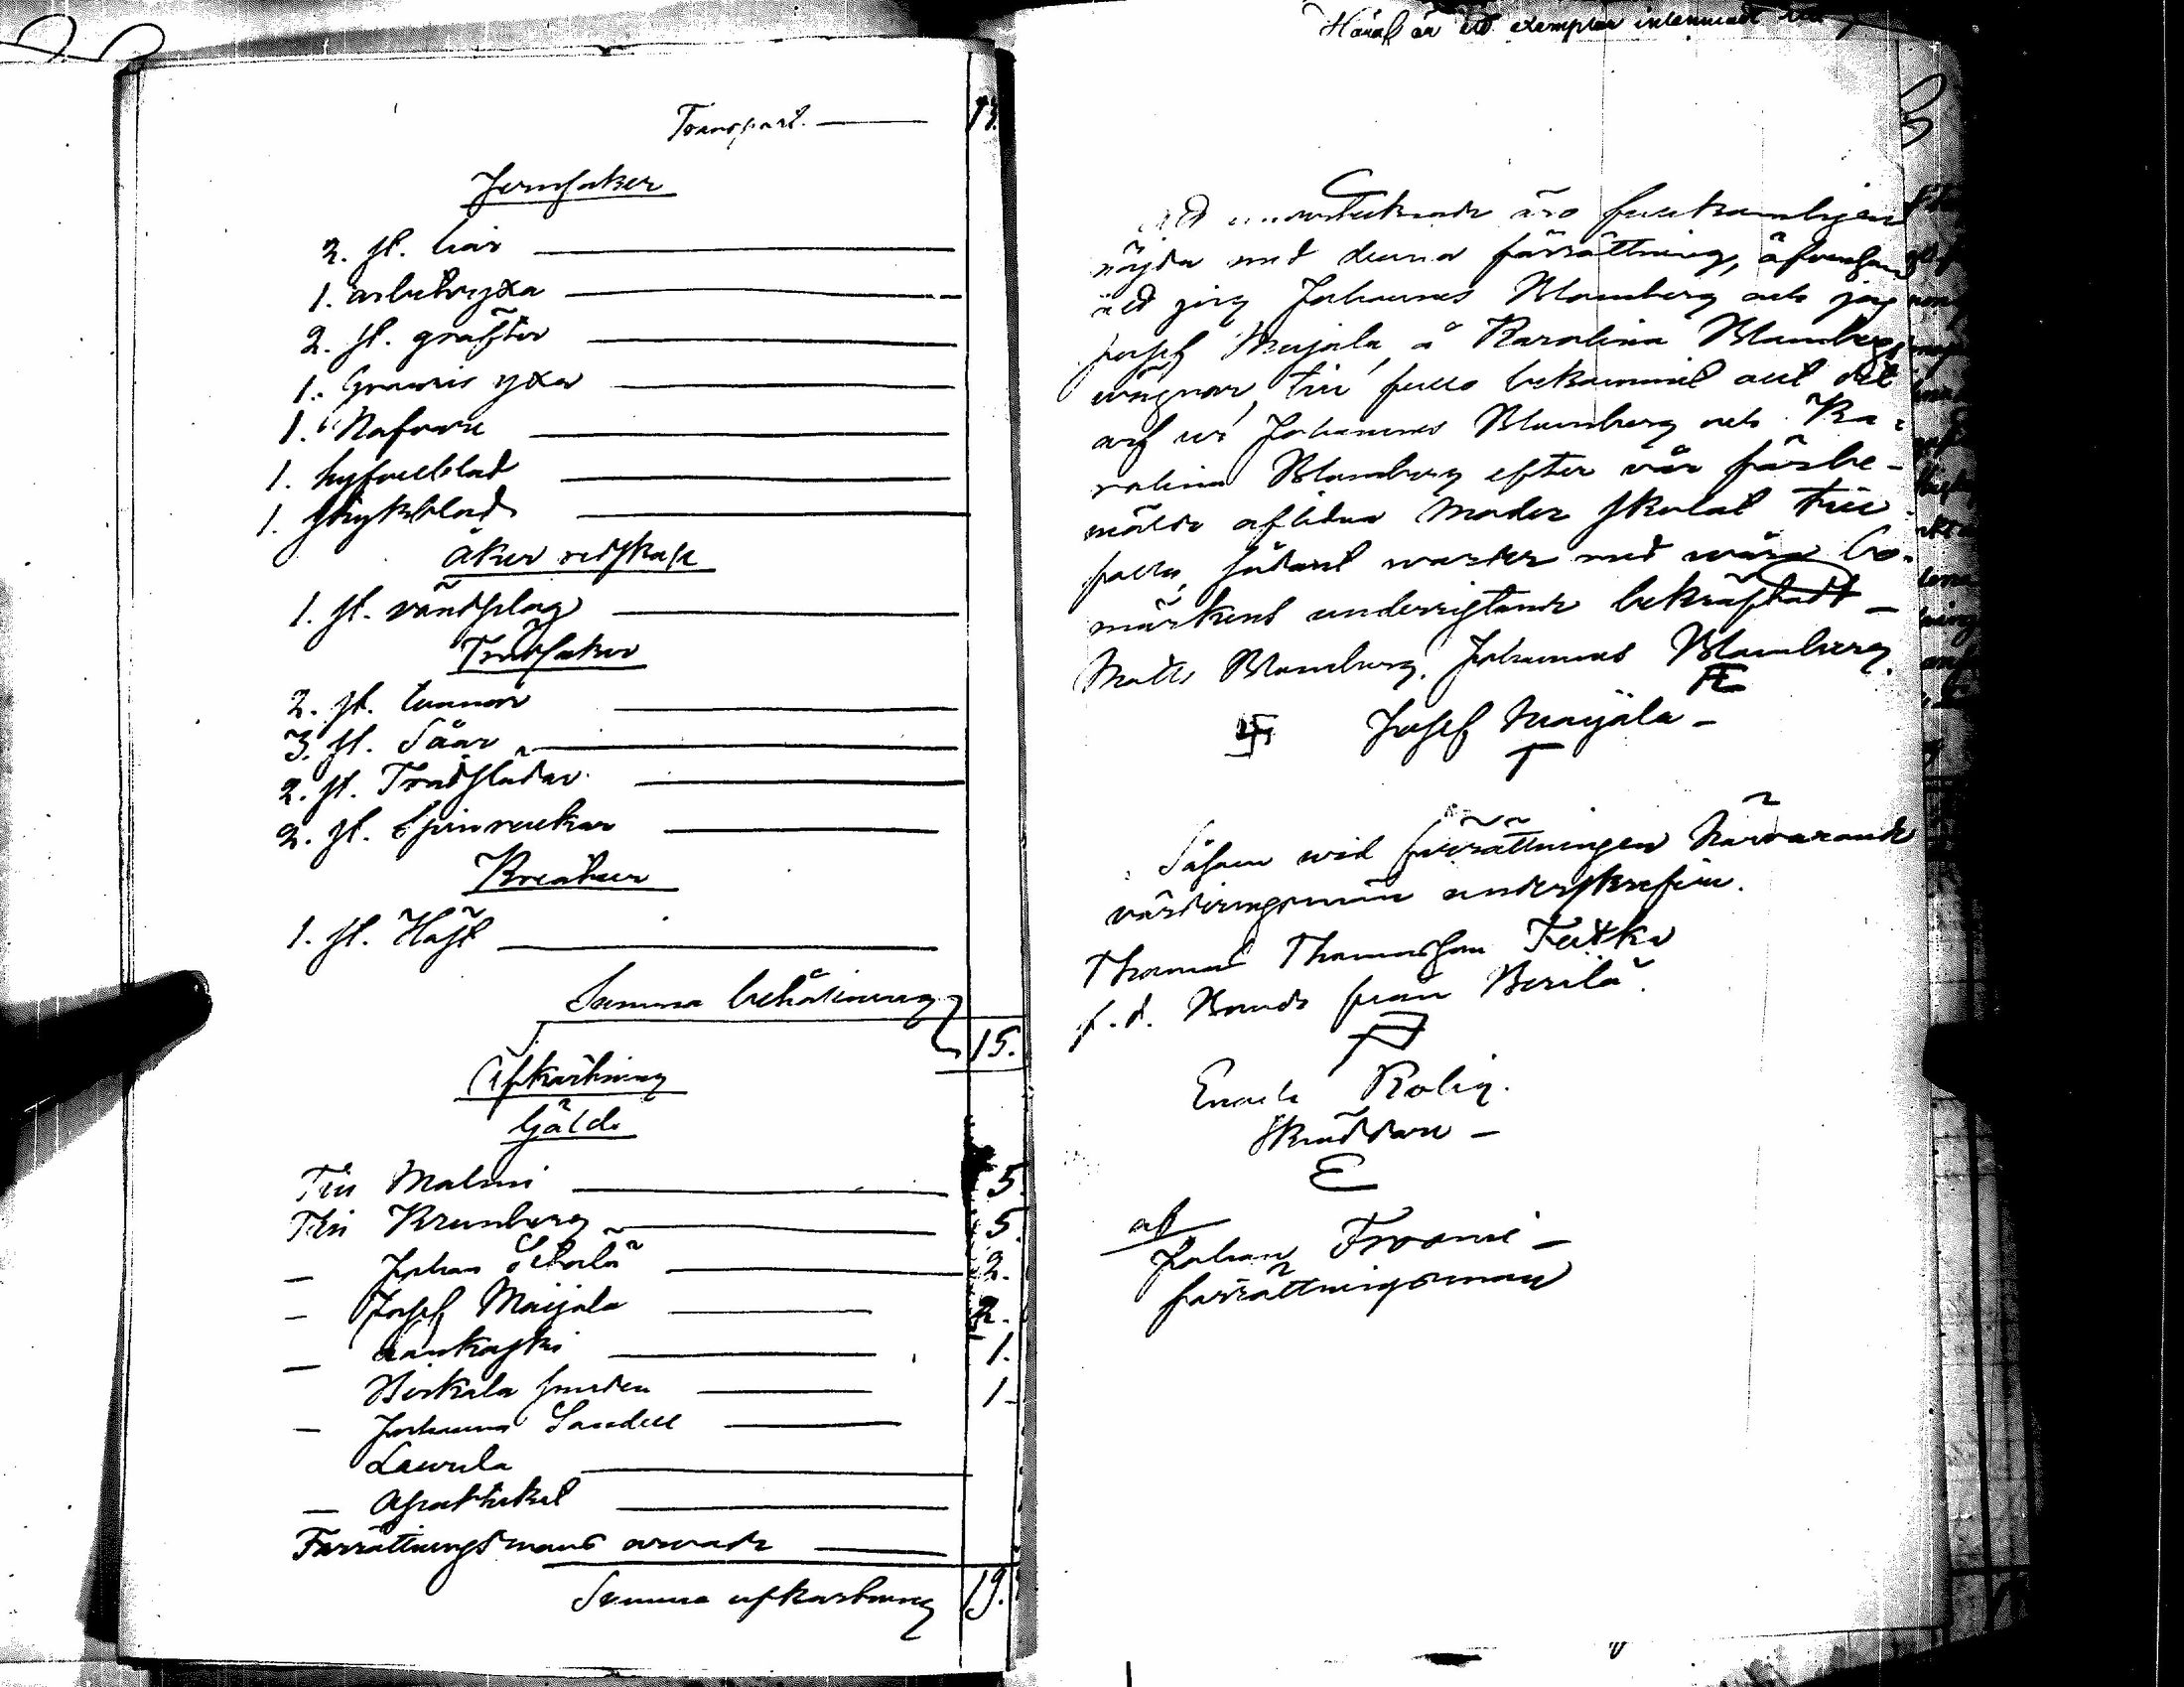 Transport. 14.
Jernsaker
2. st. liar
1. arbetsyxa
2. st. gräftor
1. Granris yxa
1. Nafvare
1. hyfvelblad
1. strykblad
åker redskap
1. st. vändplog
Trädsaker
2. st. tunnor
3. st. Såar
2. st. Trädslädar
2. st. Spinrockar
Kreatur
1. st. Häst
Summa behållning
15.
Afkortning
Gäld
Till Malmi 5.
Till Krunberg 5.
— Johan 2.
— Josef Maijala 2.
— Lankoski 1.
Virkala 1.
— Johannes Sandell
Laurila
— Apotheket
Förrättningsmans arvode
Summa afkortning 19.
Häraf är ett exemplar inlemnadt
Att undertecknade äro fullkomligen
nöjda med denna förrättning, äfvensom
att jag Johannes Blomberg och jag
Josef Maijala, å Karolina Blombergs
wägnar, till fullo bekommit allt det
arf wi Johannes Blomberg och Ka-
rolina Blomberg efter vår förbe-
mälde aflidna Moder skolat till-
falla, sådant warder med wåra bo-
märkens underristande bekräftadt —
Matts Blomberg. Johannes Blomberg.
Josef Maijala —
Såsom wid förrättningen närvarande
värderingsmän underskrifva.
Thomas Thomasson
f. d. Bonde från
Enock Rolig.
Skräddare —
E
af
Johan —
förrättningsman